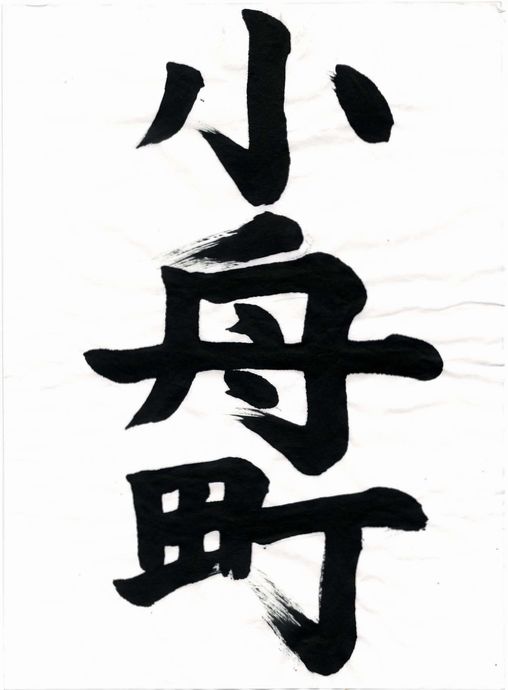 小舟町